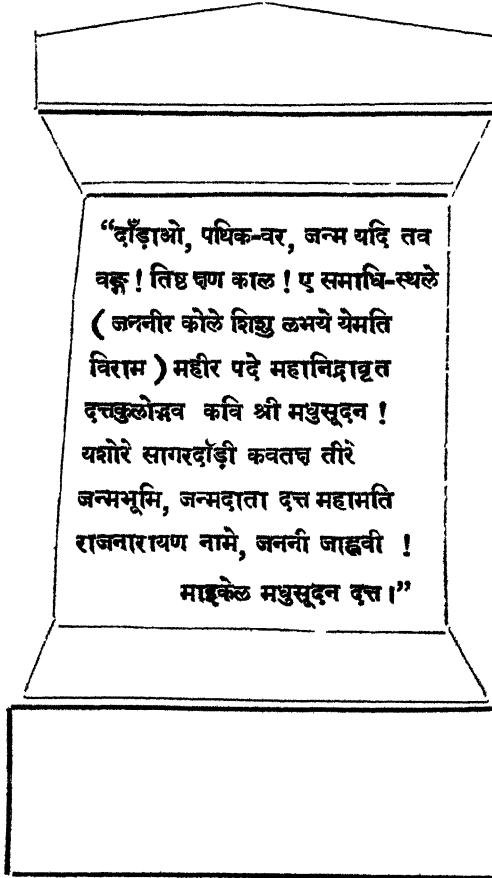 “दाँड़ाओ, पथिक-वर, जन्म यदि तव
वङ्ग ! तिष्ठ क्षण काल ! ए समाधि-स्थले
( जननीर कोले शिशु लभये येमति
विराम ) महीर पदे महानिद्रावृत
दत्तकुलोद्भव कवि श्री मधुसूदन !
यशोरे सागरदाँड़ी कवतक्ष तीरे
जन्मभूमि, जन्मदाता दत्त महामति
राजनारायण नामे, जननी जाह्नवी !
माइकेल मधुसूदन दत्त।”